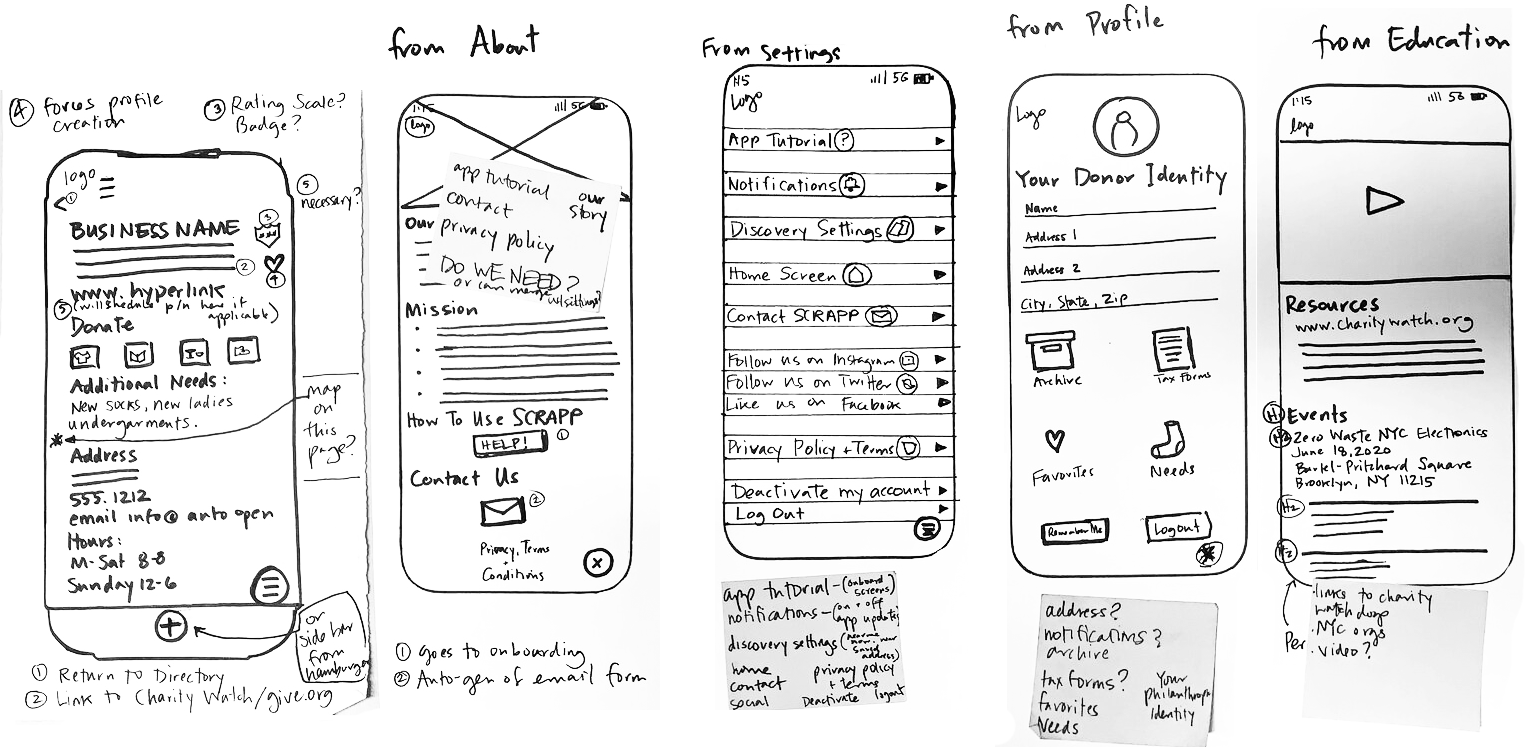 from About
From Settings
from Profile
from Education
④ forces profile
creation
③ Rating Scale?
Badge?
⑤
necessary?
logo
①
BUSINESS NAME
③
②
④
www.hyperlink
⑤ (will schedule p/u here if
applicable)
Donate
Additional Needs:
New socks, new ladies
undergarments.
map
on
this
page?
Address
555.1212
email info@ auto open
Hours:
M-Sat 8-8
Sunday 12-6
or
side bar
from
hamburger
① Return to Directory
② Link to Charity Watch/give.org
1:15
5G
logo
app tutorial
contact
our
story
privacy policy
DO WE NEED?
or can merge
w/settings?
Our
Mission
How To Use SCRAPP
HELP! ①
Contact Us
②
Privacy, Terms
+
Conditions
① goes to onboarding
② Auto-gen of email form
1:15
5G
Logo
App Tutorial ?
Notifications
Discovery Settings
Home Screen
Contact SCRAPP
Follow us on Instagram
Follow us on Twitter
Like us on Facebook
Privacy Policy + Terms
Deactivate my account
Log Out
app tutorial - (onboard
screens)
notifications - (on + off
app updates)
discovery settings (
saved
address)
home
contact
social
privacy policy
+ terms
Deactivate logout
Logo
Your Donor Identity
Name
Address 1
Address 2
City, State, Zip
Archive
Tax Forms
Favorites
Needs
Remember Me
Logout
address?
notifications?
archive
tax forms?
favorites
Needs
Your
philanthropic
Identity
1:15
5G
logo
Resources
www.charitywatch.org
H1 Events
H2 Zero Waste NYC Electronics
June 18, 2020
Bartel-Pritchard Square
Brooklyn, NY 11215
H2
H2
Per
· links to charity
watch dogs
· NYC orgs
· video?